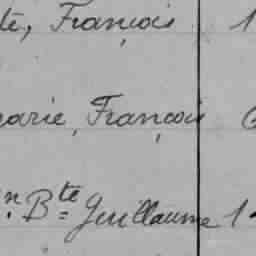 te, François 1
arie, François
n. Bte Guillaume 1